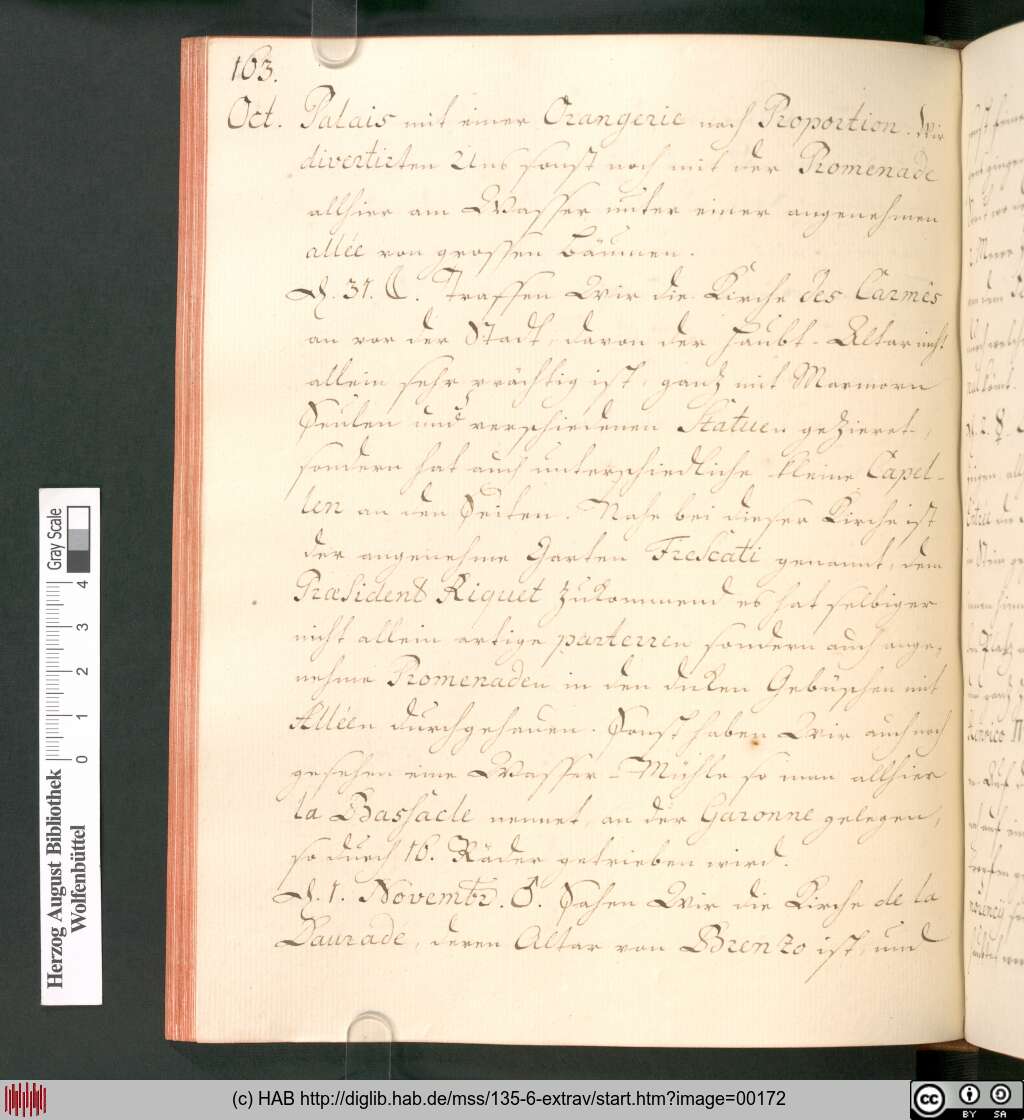 163.
Oct. Palais mit einer Orangerie nach Proportion. Wir
divertirten Uns sonst noch mit der Promenade
allhier am Wasser unter einer angenehmen
allée von grossen bäumen.
D. 31. ☾. Traffen Wir die Kirche des Carmes
an vor der Stadt, davon der haubt-Altar nicht
allein sehr prächtig ist, ganz mit Marmorn
Seulen und verschiedenen Statuen gezieret,
sondern hat auch unterschiedliche kleine Capel-
len an den Seiten. Nahe bei dieser Kirche ist
der angenehme Garten Frescati genannt, dem
Præsident Riquet zukommend es hat selbiger
nicht allein artige parterren sondern auch ange-
nehme Promenaden in den dicken Gebüschen mit
Alléen durchgehauen. Sonst haben Wir auch noch
gesehen eine Wasser-Mühle so man allhier
la Bassacle nennet, an der Garonne gelegen,
so durch 16. Räder getrieben wird.
D. 1. Novembr. ♂. Sahen Wir die Kirche de la
Daurade, deren Altar von Brenzo ist, und
Herzog August Bibliothek
Wolfenbüttel
0 1 2 3 4
Gray Scale
(c) HAB http://diglib.hab.de/mss/135-6-extrav/start.htm?image=00172
cc BY SA